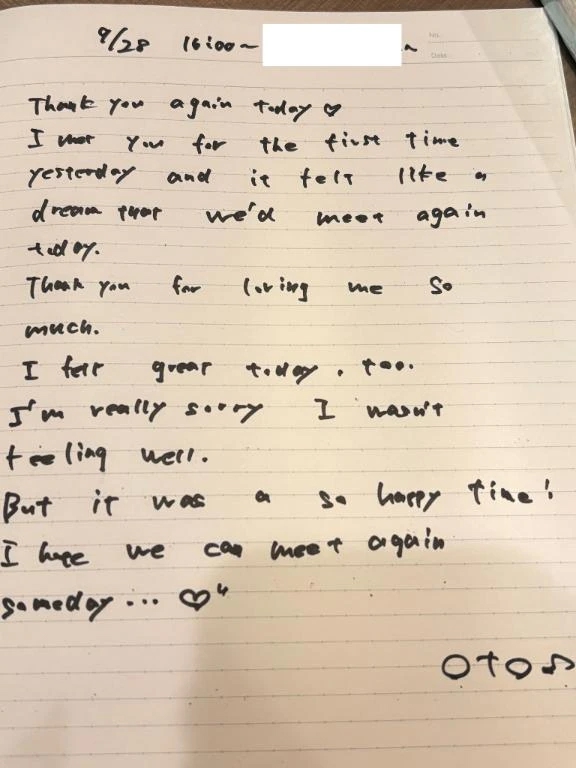 9/28 16:00~ ~
No.
Date
Thank you again today ♡
I met you for the first time
yesterday and it felt like a
dream that we'd meet again
today.
Thank you for loving me so
much.
I felt great today, too.
I'm really sorry I wasn't
feeling well.
But it was a so happy time!
I hope we can meet again
someday... ♡"
OTO♫